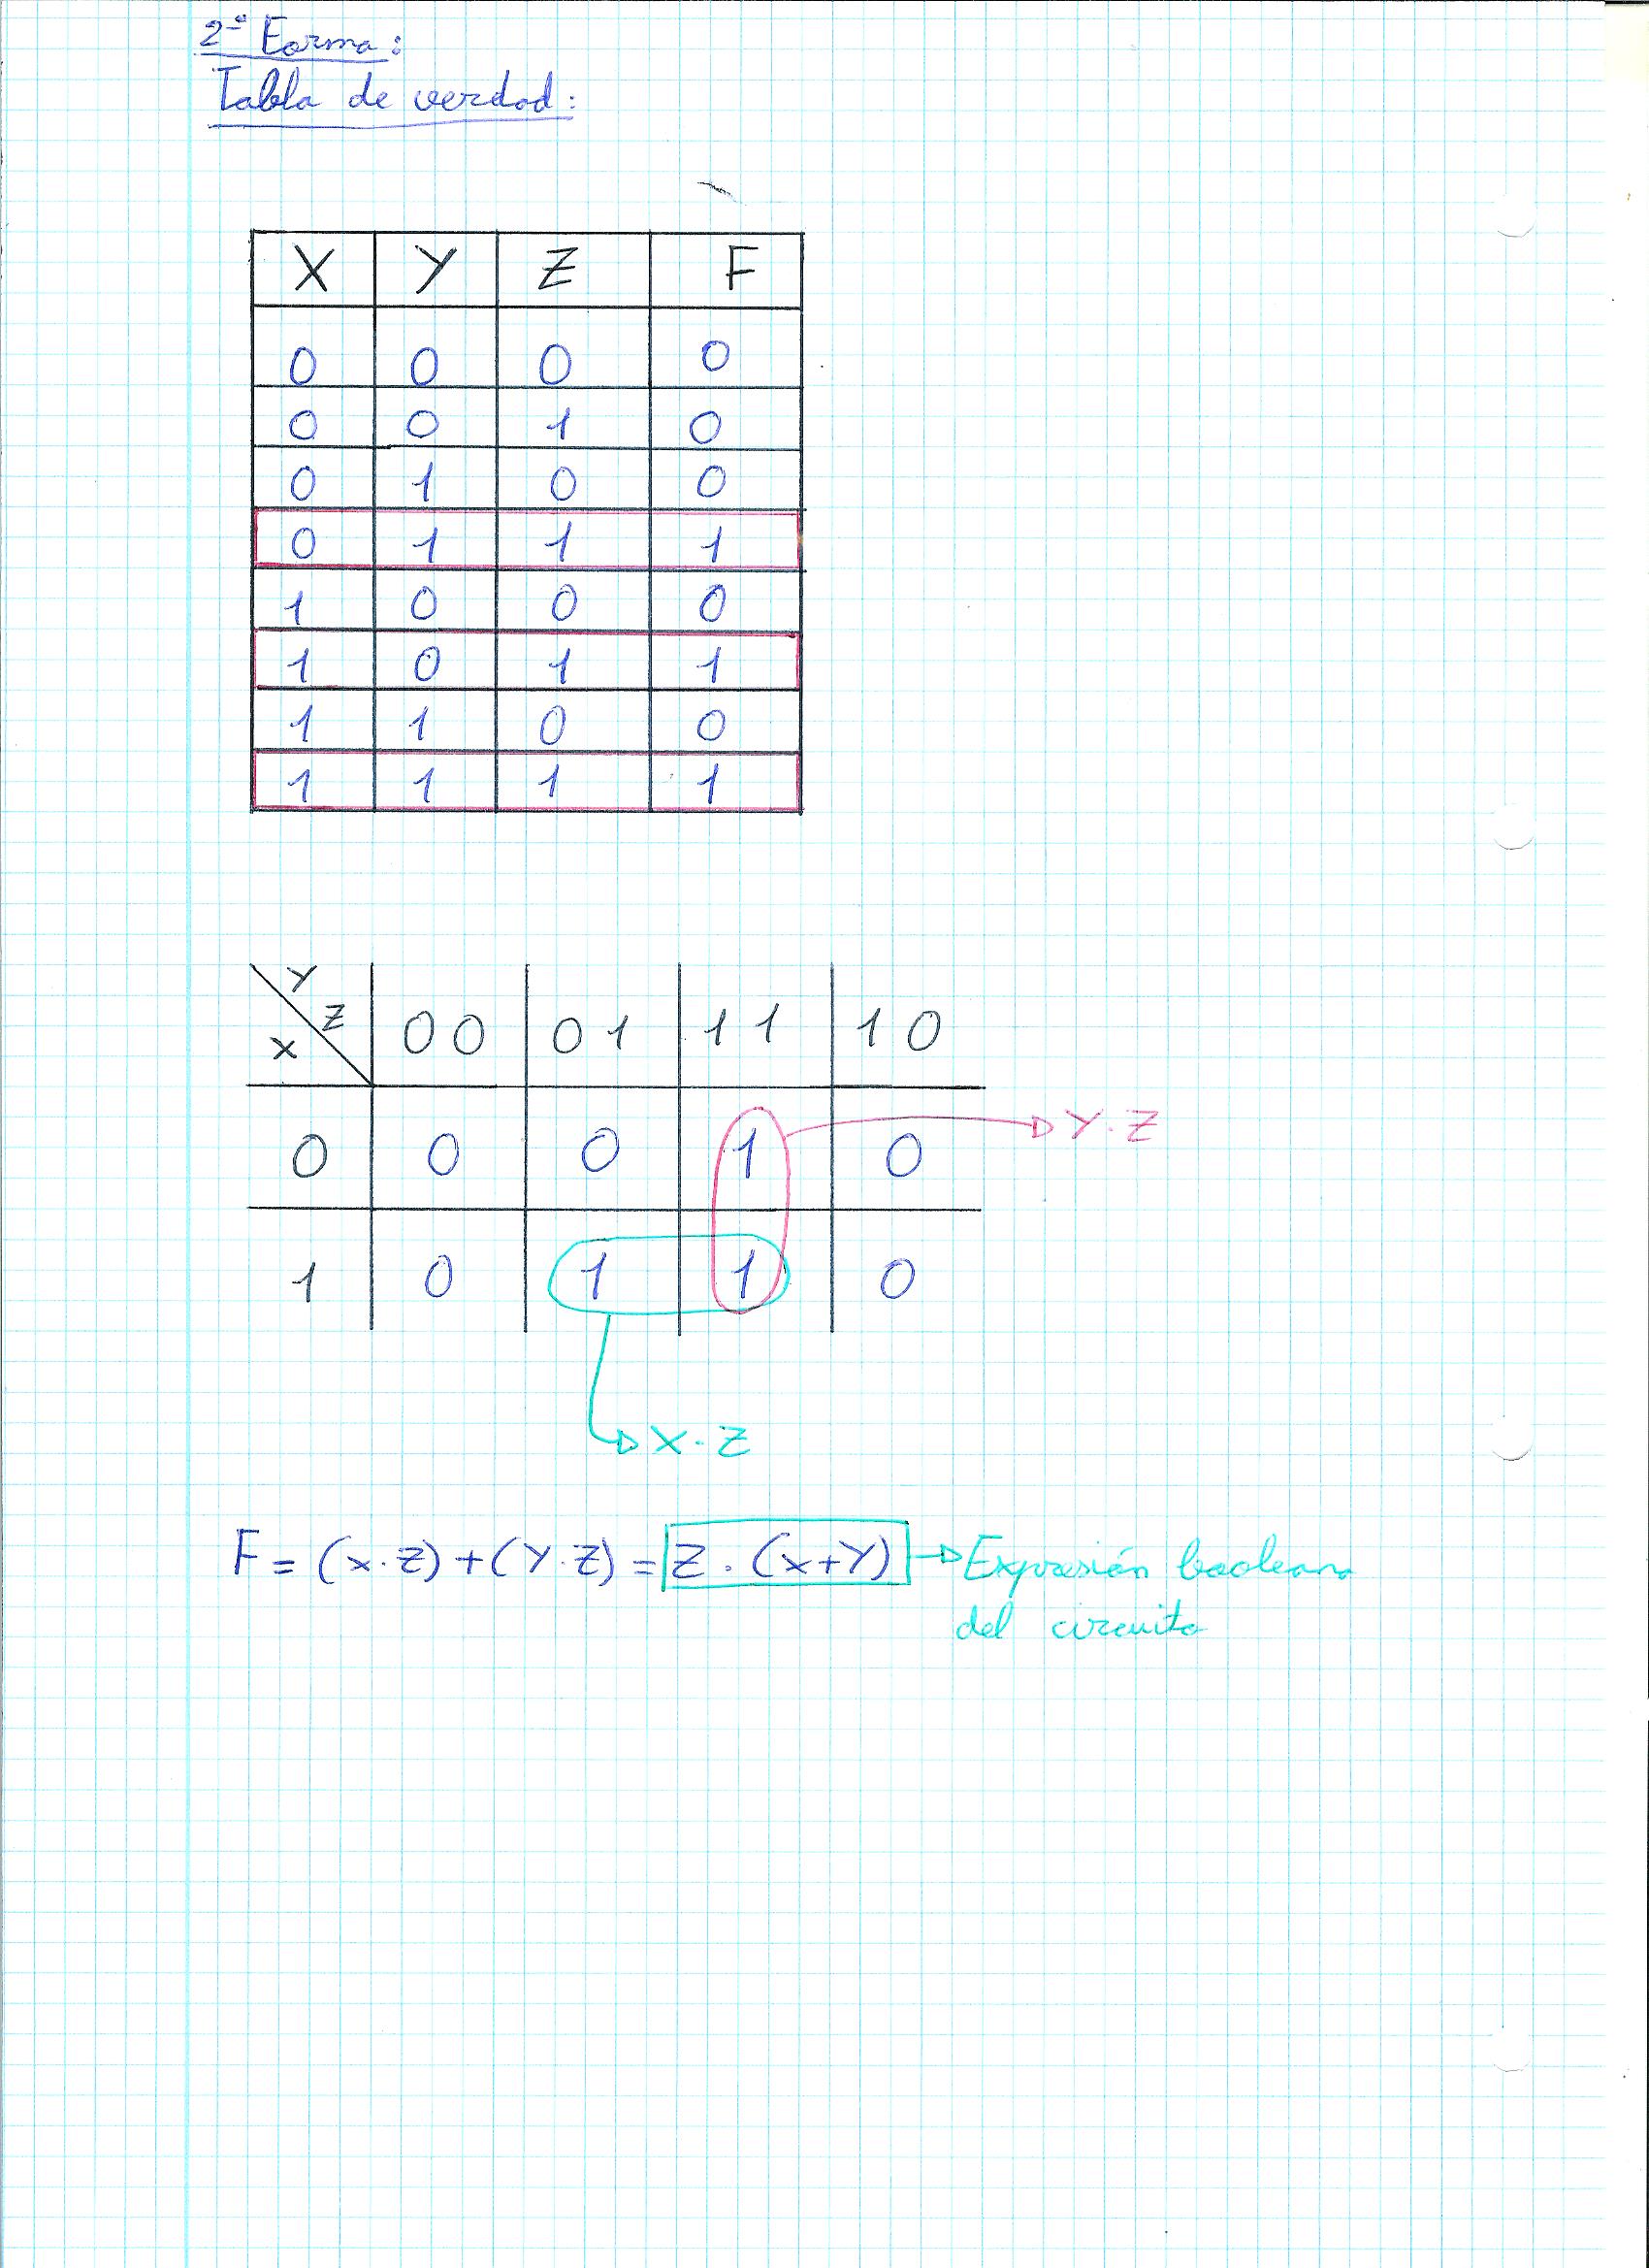 2ª Forma:
Tabla de verdad:
X Y Z F
0 0 0 0
0 0 1 0
0 1 0 0
0 1 1 1
1 0 0 0
1 0 1 1
1 1 0 0
1 1 1 1
Y
Z
X
00 01 11 10
0 0 0 1 0
Y·Z
1 0 1 1 0
X·Z
F = (x·z)+(Y·z) = Z·(x+Y) Expresión booleana
del circuito